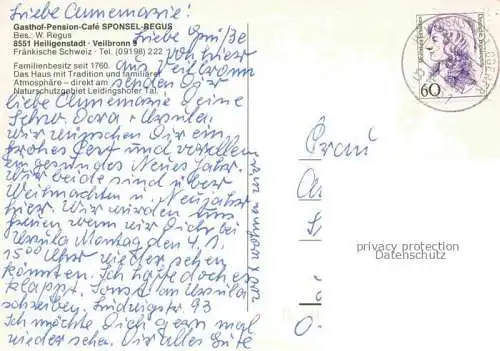 Liebe Annemarie!
Gasthof-Pension-Café SPONSEL-REGUS
Bes.: W. Regus
8551 Heiligenstadt · Veilbronn 9
Fränkische Schweiz · Tel. (09198) 222
Familienbesitz seit 1760.
Das Haus mit Tradition und familiärer
Atmosphäre – direkt am
Naturschutzgebiet Leidingshofer Tal.
Liebe Grüße
von hier
aus Veilbronn
senden Dir
liebe Annemarie Deine
Schw. Dora + Ursula,
wir wünschen Dir ein
frohes Fest und vor allem
ein gesundes Neues Jahr.
Wir beide sind über
Weihnachten u. Neujahr
hier. Wir würden uns
freuen wenn wir Dich bei
Ursula Montag den 4. 1.
15 00 Uhr wieder sehen
könnten. Ich hoffe doch es
klappt. Sonst an Ursula
schreiben, Ludwigstr. 93
Ich möchte Dich gern mal
wieder sehen. Dir alles Gute
60
Frau
privacy protection
Datenschutz